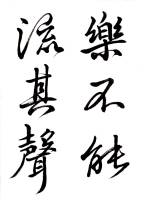 樂不能
流其聲